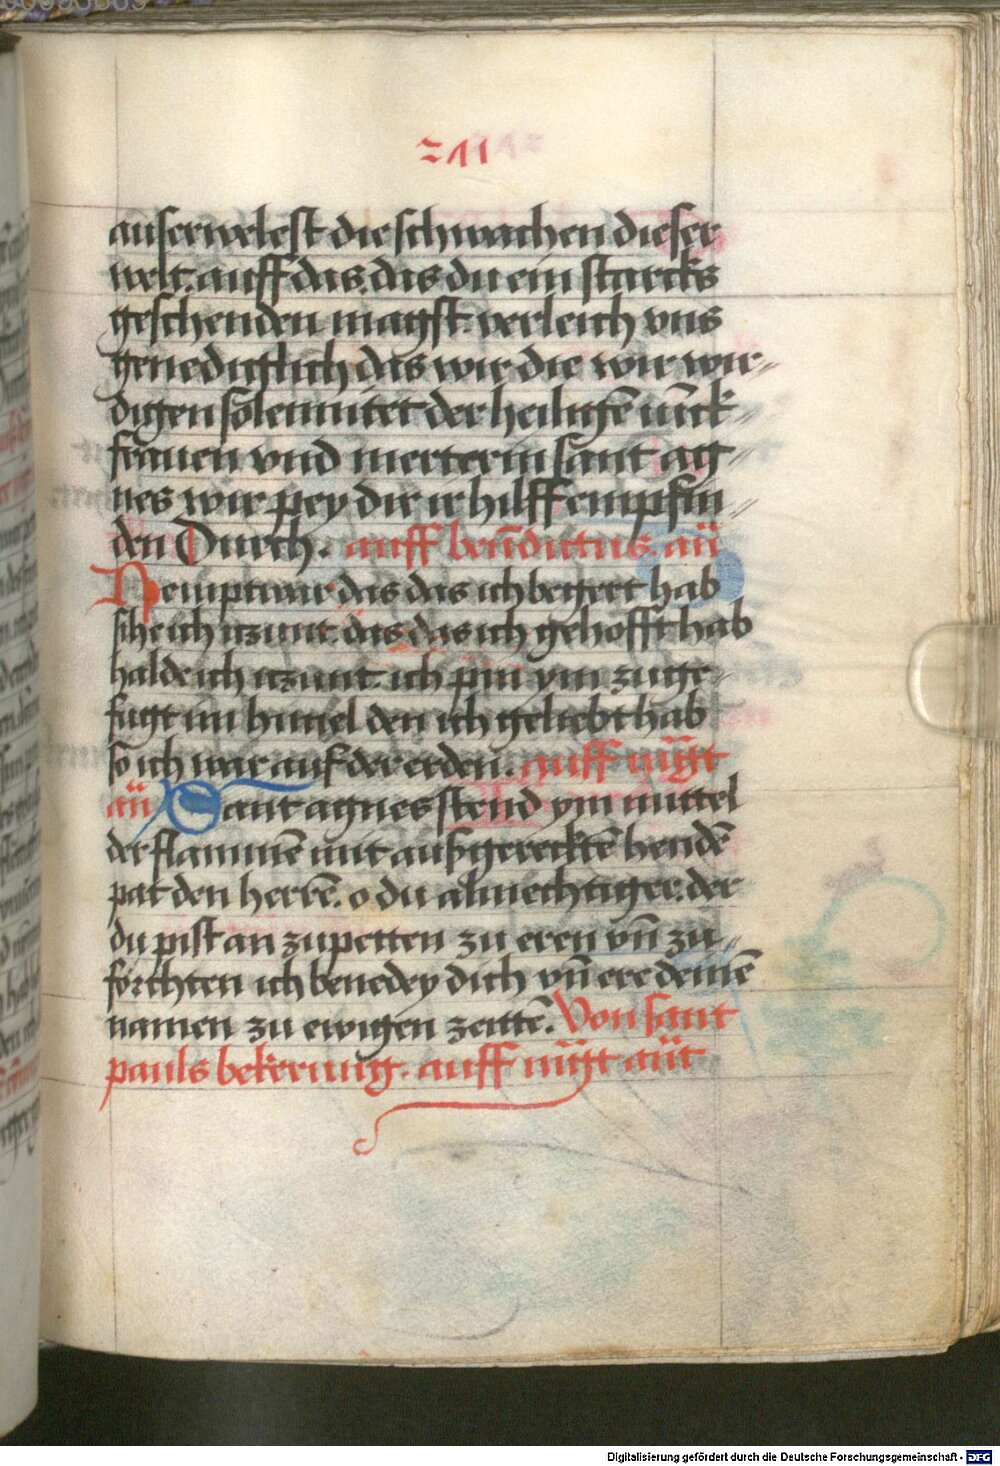 211
auserwelest die schwachen dieser
welt. auff das. das du ein starcks
geschenden magst. verleich vns
genediglich das wir die wir wir⸗
digen solemnitet der heiligē iūck⸗
frauen vnd merterin sant ag⸗
nes wir pey dir ir hilff empfin⸗
den Durch. auff bened̄ictus. añ
Nempt war das das ich begert hab
sihe ich iczunt. das das ich gehofft hab
halde ich iczunt. ich pin ym zuge⸗
fugt im himel den ich geliebt hab
so ich war auf der erden. auff m̄gt
añ Sant agnes stend ym mittel
der flammē mit außgerecktē hendē
pat den herrē. o du almechtiger. der
du pist an zupetten zu eren vn̄ zu⸗
forchten ich benedey dich vn̄ ere deinē
namen zu ewigen zeittē. Von sant
pauls bekerung. auff m̄gt añt
Digitalisierung gefördert durch die Deutsche Forschungsgemeinschaft - DFG